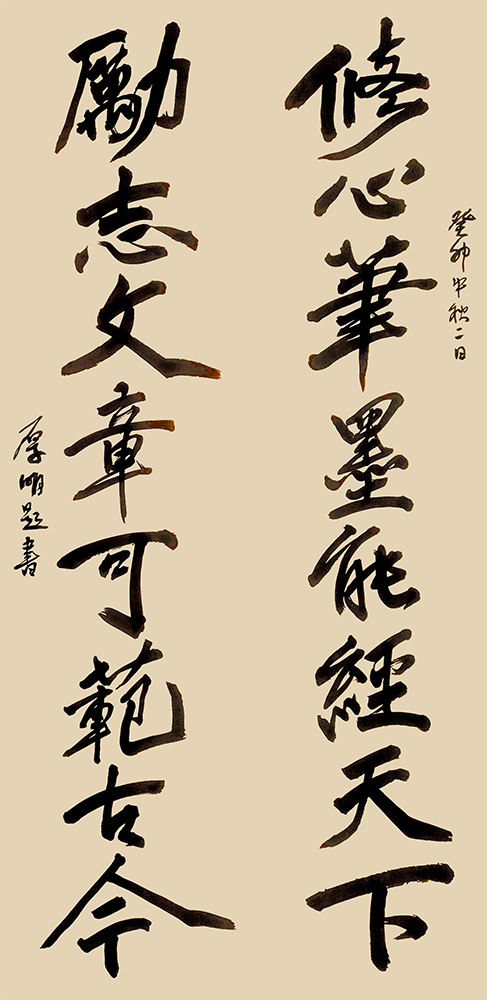 癸卯中秋二日
修心筆墨能經天下
勵志文章可範古今
厚明題書